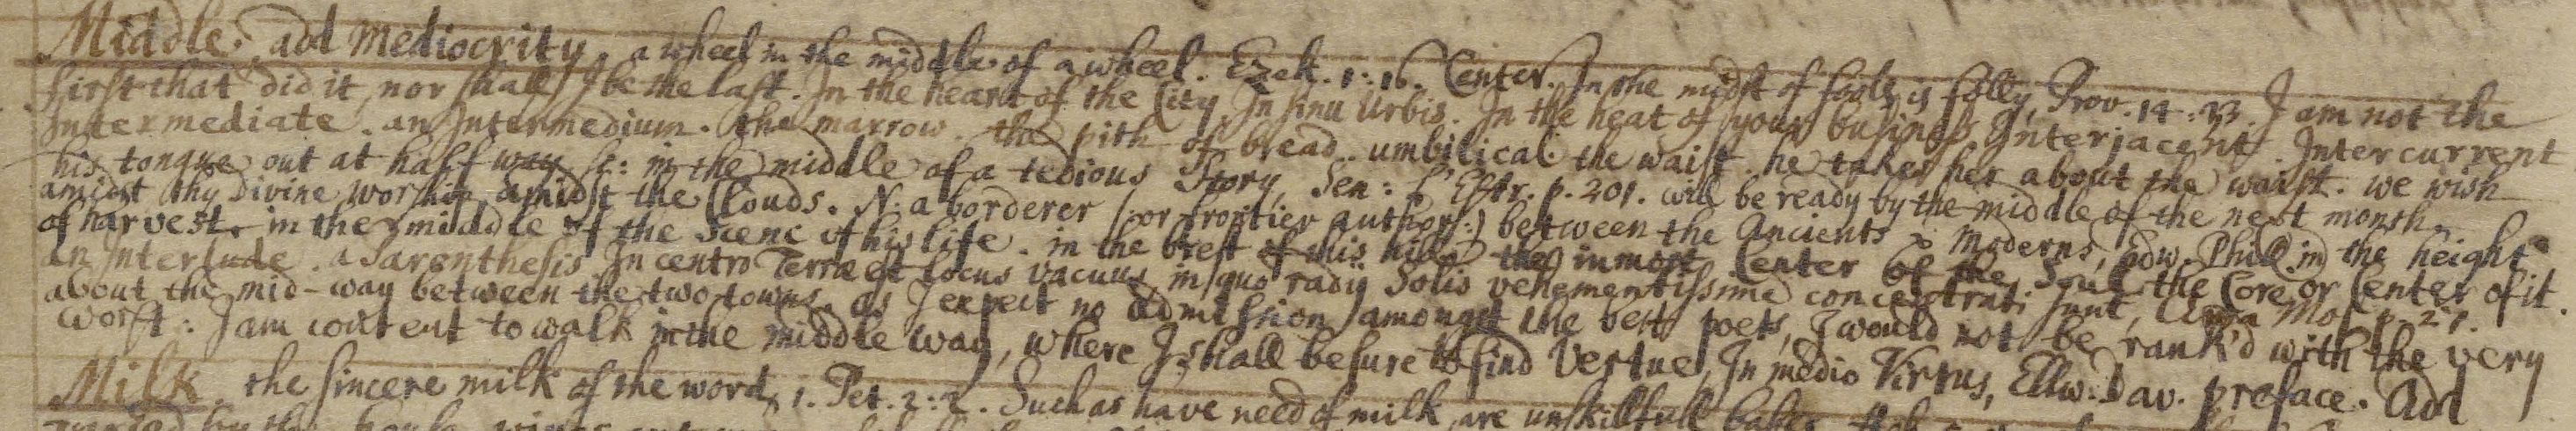 Middle. add Mediocrity. a wheel in the middle of a wheel. Ezek. 1:16. Center. In the midst of fools is folly, Prov. 14:33. I am not the
first that did it, nor shall I be the last. In the heart of the City. In sinu Urbis. In the heat of your business Interjacent. Intercurrent
Intermediate. an Intermedium. the marrow. the pith of bread. umbilical. the waist. he takes her about the waist. we wish
his tongue out at half way sc: in the middle of a tedious Story, Sen: L'Estr. p. 201. will be ready by the middle of the next month.
amidst thy divine worship, amidst the Clouds. N: a borderer (or frontier author:) between the Ancients & Moderns, Edw. Phill. in the height
of harvest. in the middle of the Scene of his life. in the brest of this hill. the inmost Center of the Soul. the Core or Center of it.
an Interlude. a Parenthesis. In centro Terræ est locus vacuus, in quo radij Solis vehementissime concentrati sunt, p. 21.
about the mid-way between the two towns. as I expect no admission amongst the best poets, I would not be rank'd with the very
worst: I am content to walk in the middle way, where I shall be sure to find Vertue, In medio Virtus, Ellw. Dav. preface. Add
Milk. the sincere milk of the word, 1. Pet. 2:2. Such as have need of milk, are unskillfull babes,